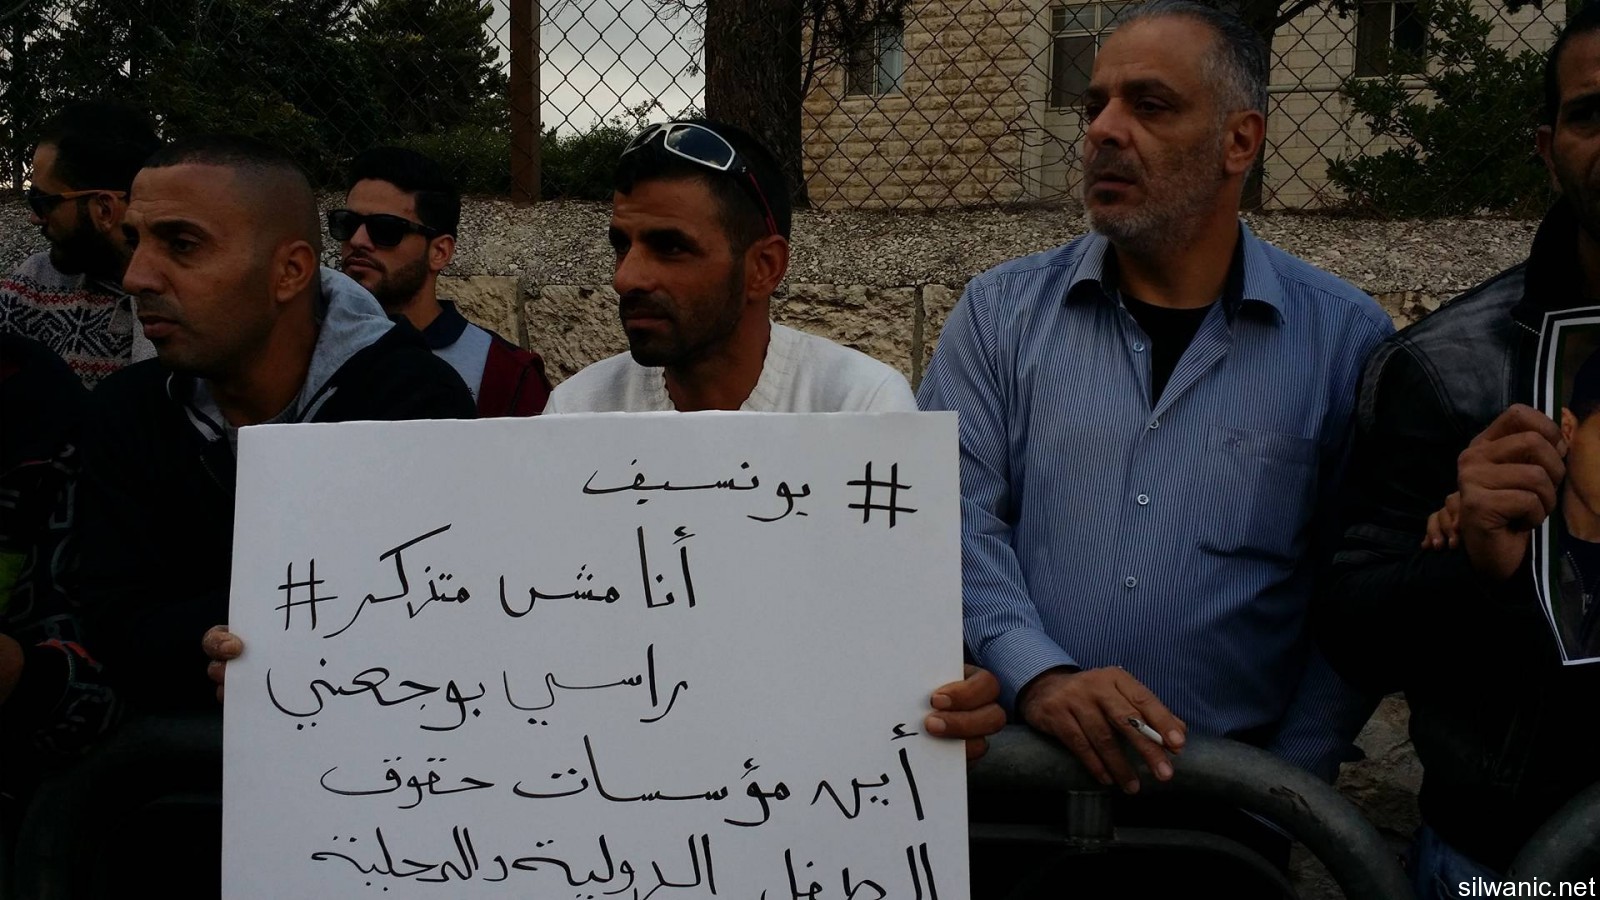 # يونسيف
أنا مش متذكر #
راسي بوجعني
أين مؤسسات حقوق
الطفل الدولية والمحلية
silwanic.net